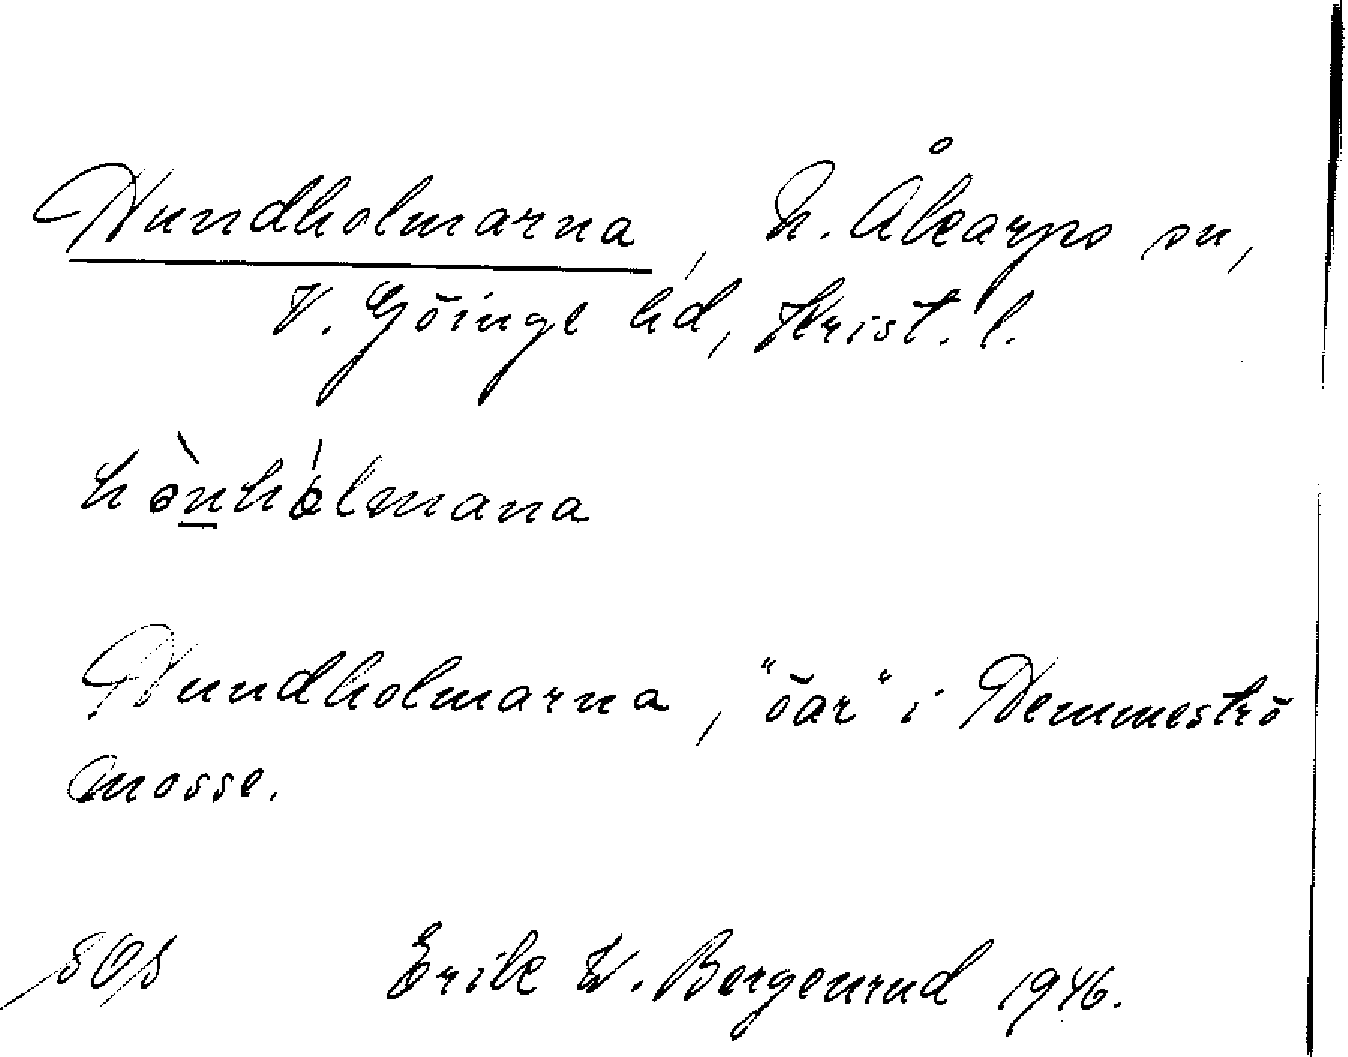 Hundholmarna, N. Åkarps sn,
V. Göinge hd, Krist. l.
hònhólmana
Hundholmarna, "öar" i Hemmeströ
mosse.
Erik W. Bergenrud 1946.